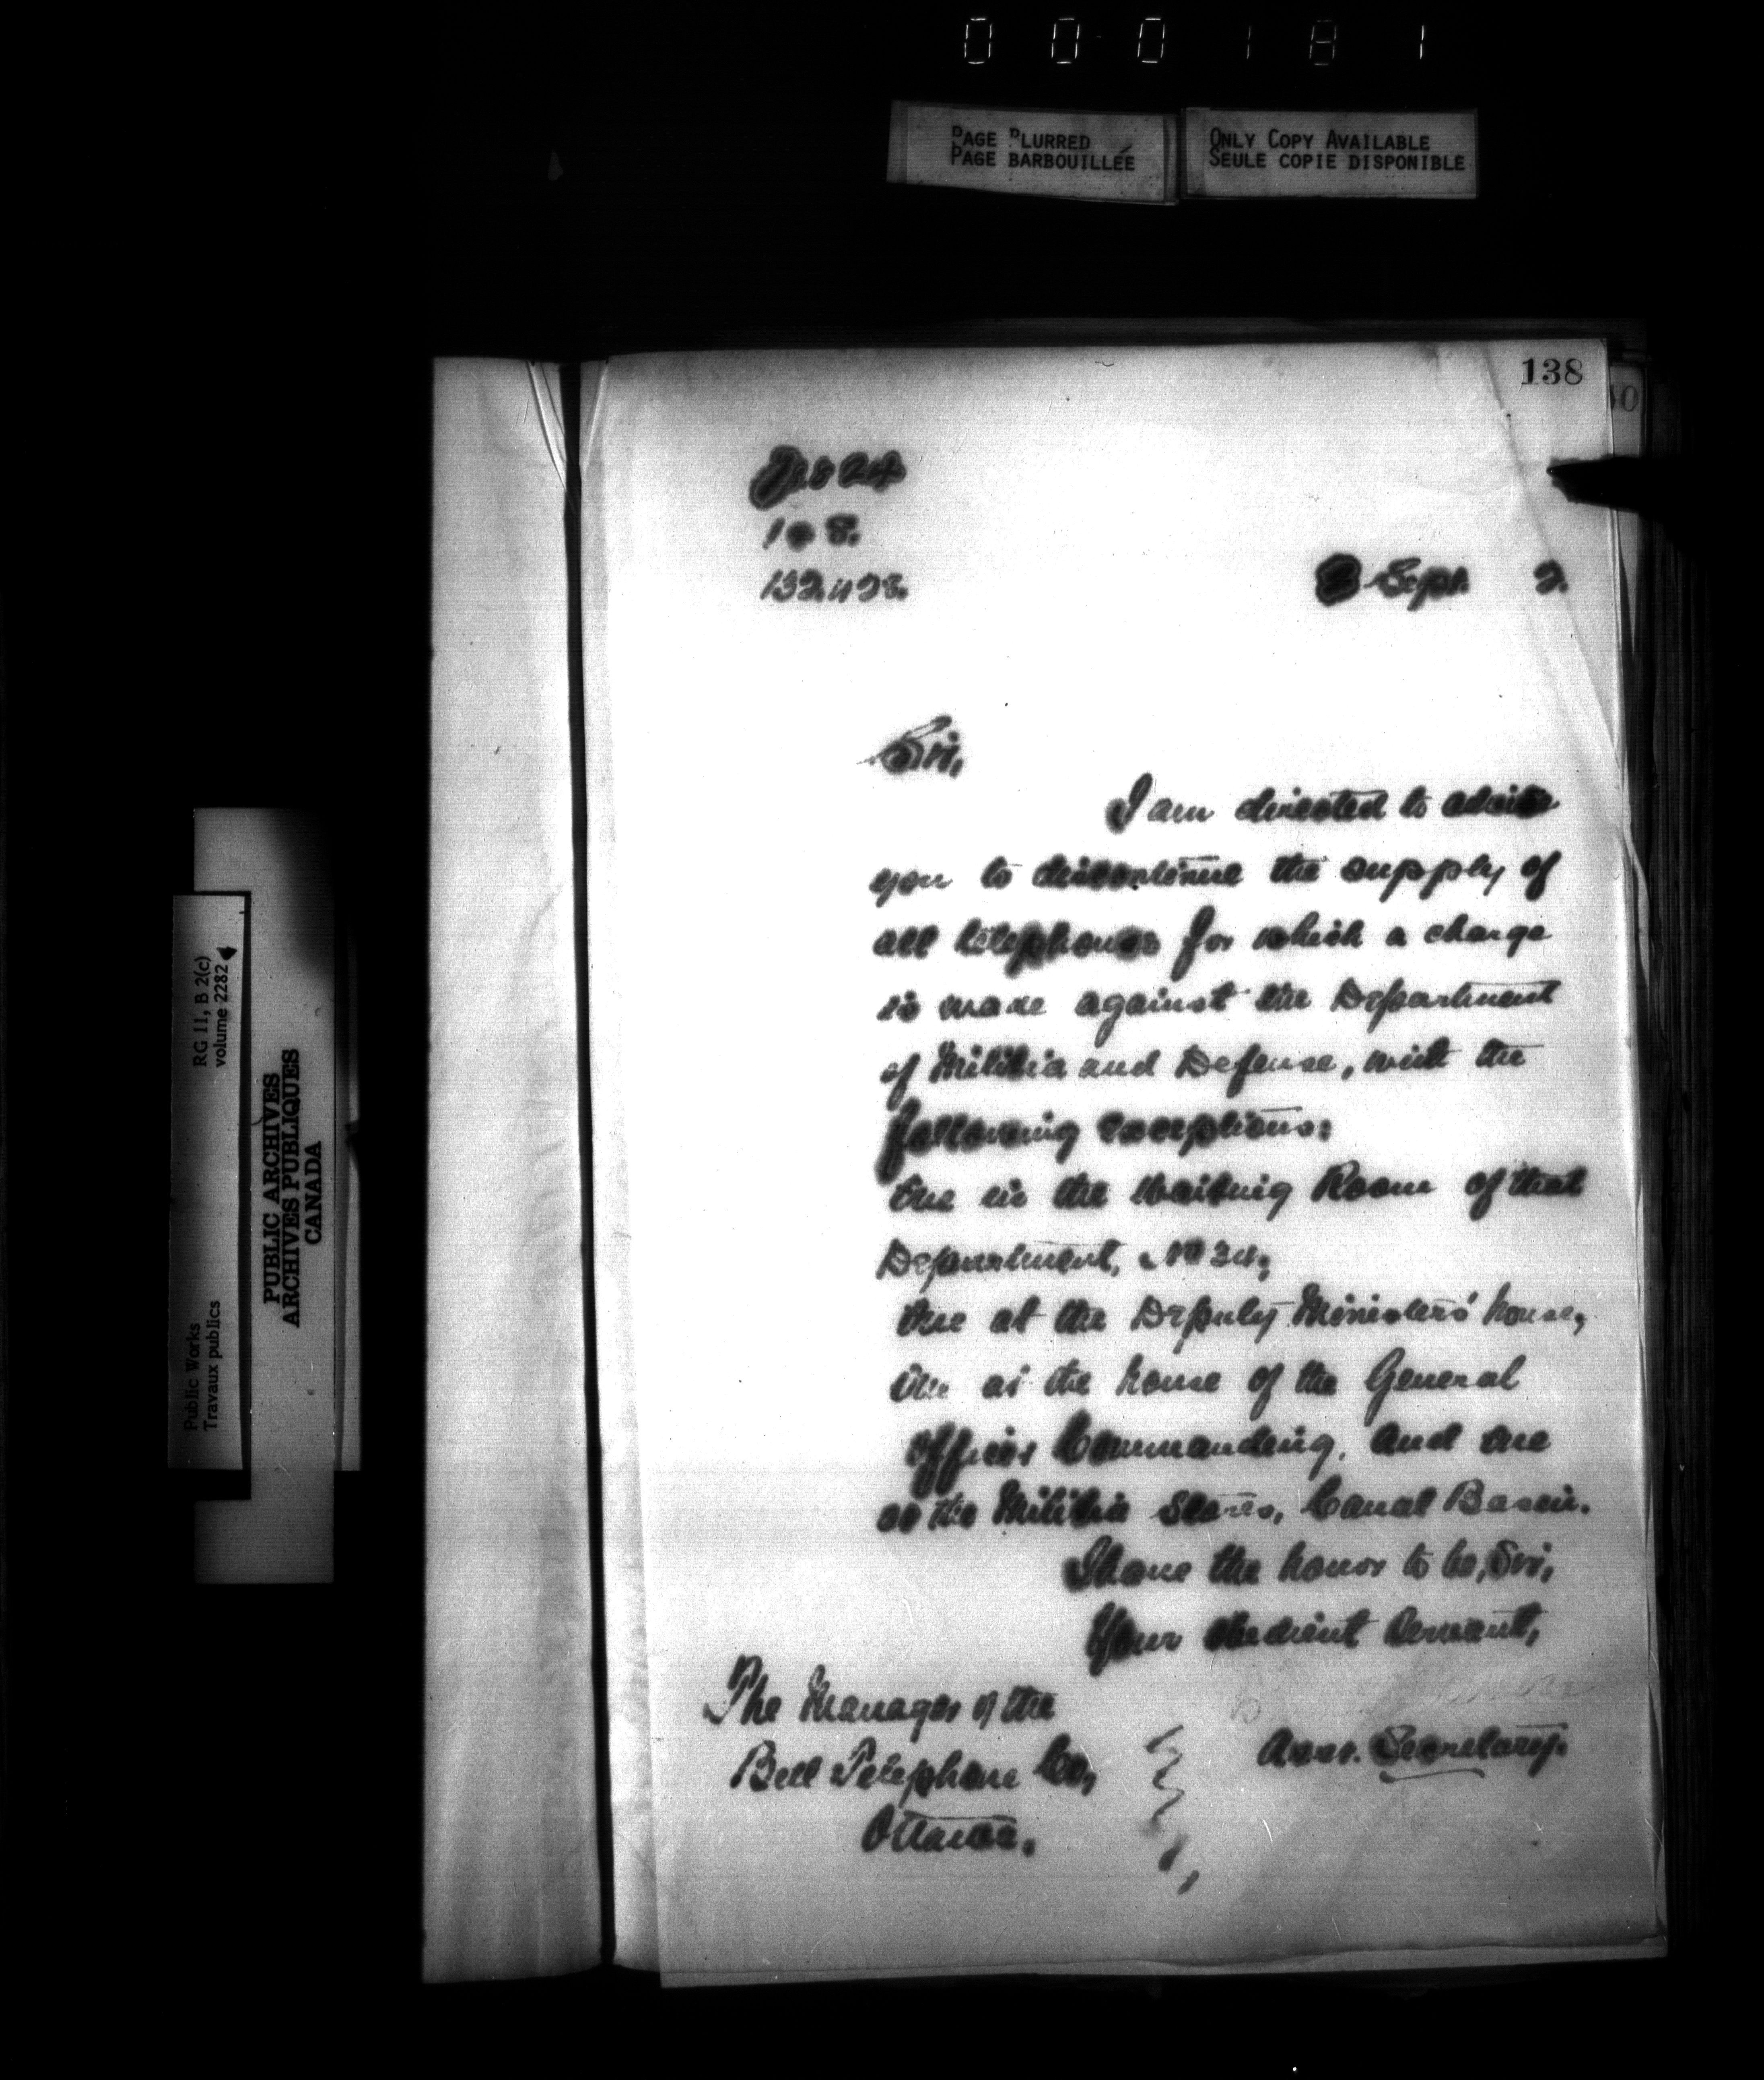 000181
PAGE BLURRED
PAGE BARBOUILLÉE
ONLY COPY AVAILABLE
SEULE COPIE DISPONIBLE
138
Sept. 2.
Sir,
I am directed to advise
you to discontinue the supply of
all telephones for which a charge
is made against the Department
of Militia and Defense, with the
following exceptions:
One in the Waiting Room of that
Department, No 34;
One at the Deputy Ministers' house,
One at the house of the General
Officer Commanding, and one
at the Militia Stores, Canal Basin.
I have the honor to be, Sir,
Your obedient Servant,
Asst. Secretary.
The Manager of the
Bell Telephone Co,
Ottawa.
RG 11, B 2(c)
volume 2282
Public Works
Travaux publics
PUBLIC ARCHIVES
ARCHIVES PUBLIQUES
CANADA